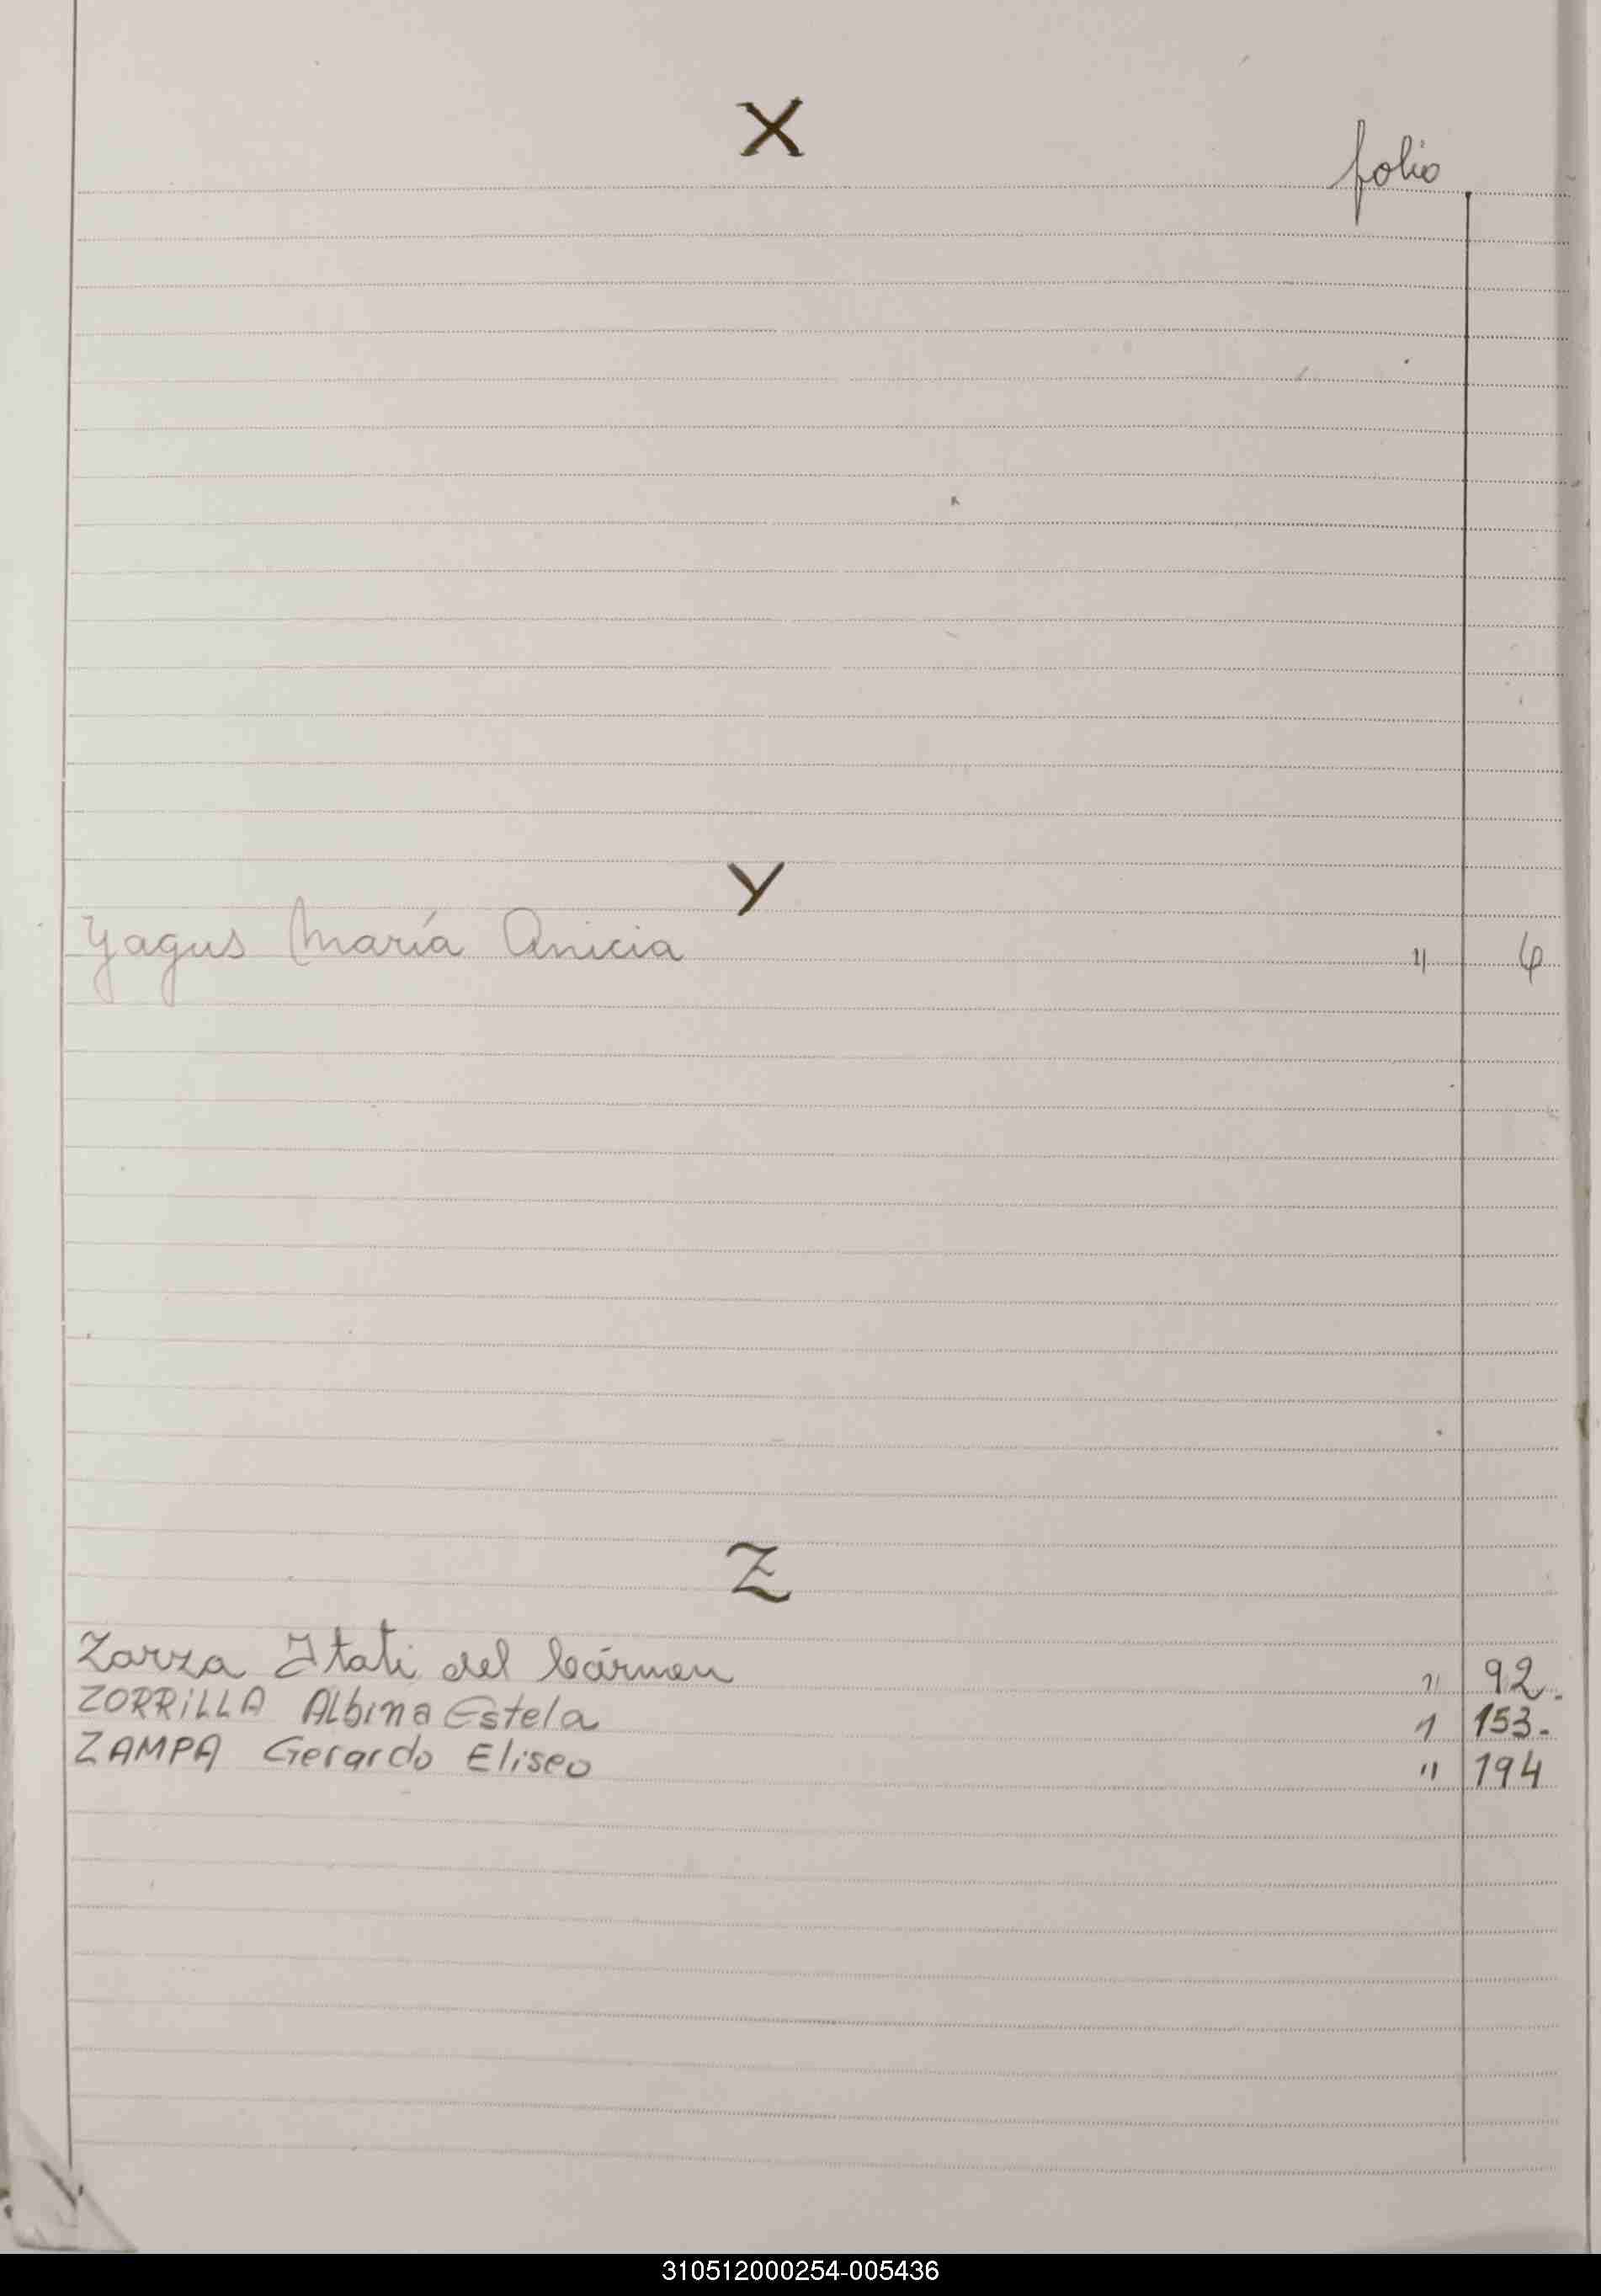 X
folio
Y
Yagus María Anicia " 4
Z
Zarza Itati del Cármen " 92.
ZORRiLLA Albina Estela 1 153.
ZAMPA Gerardo Eliseo " 194
310512000254-005436